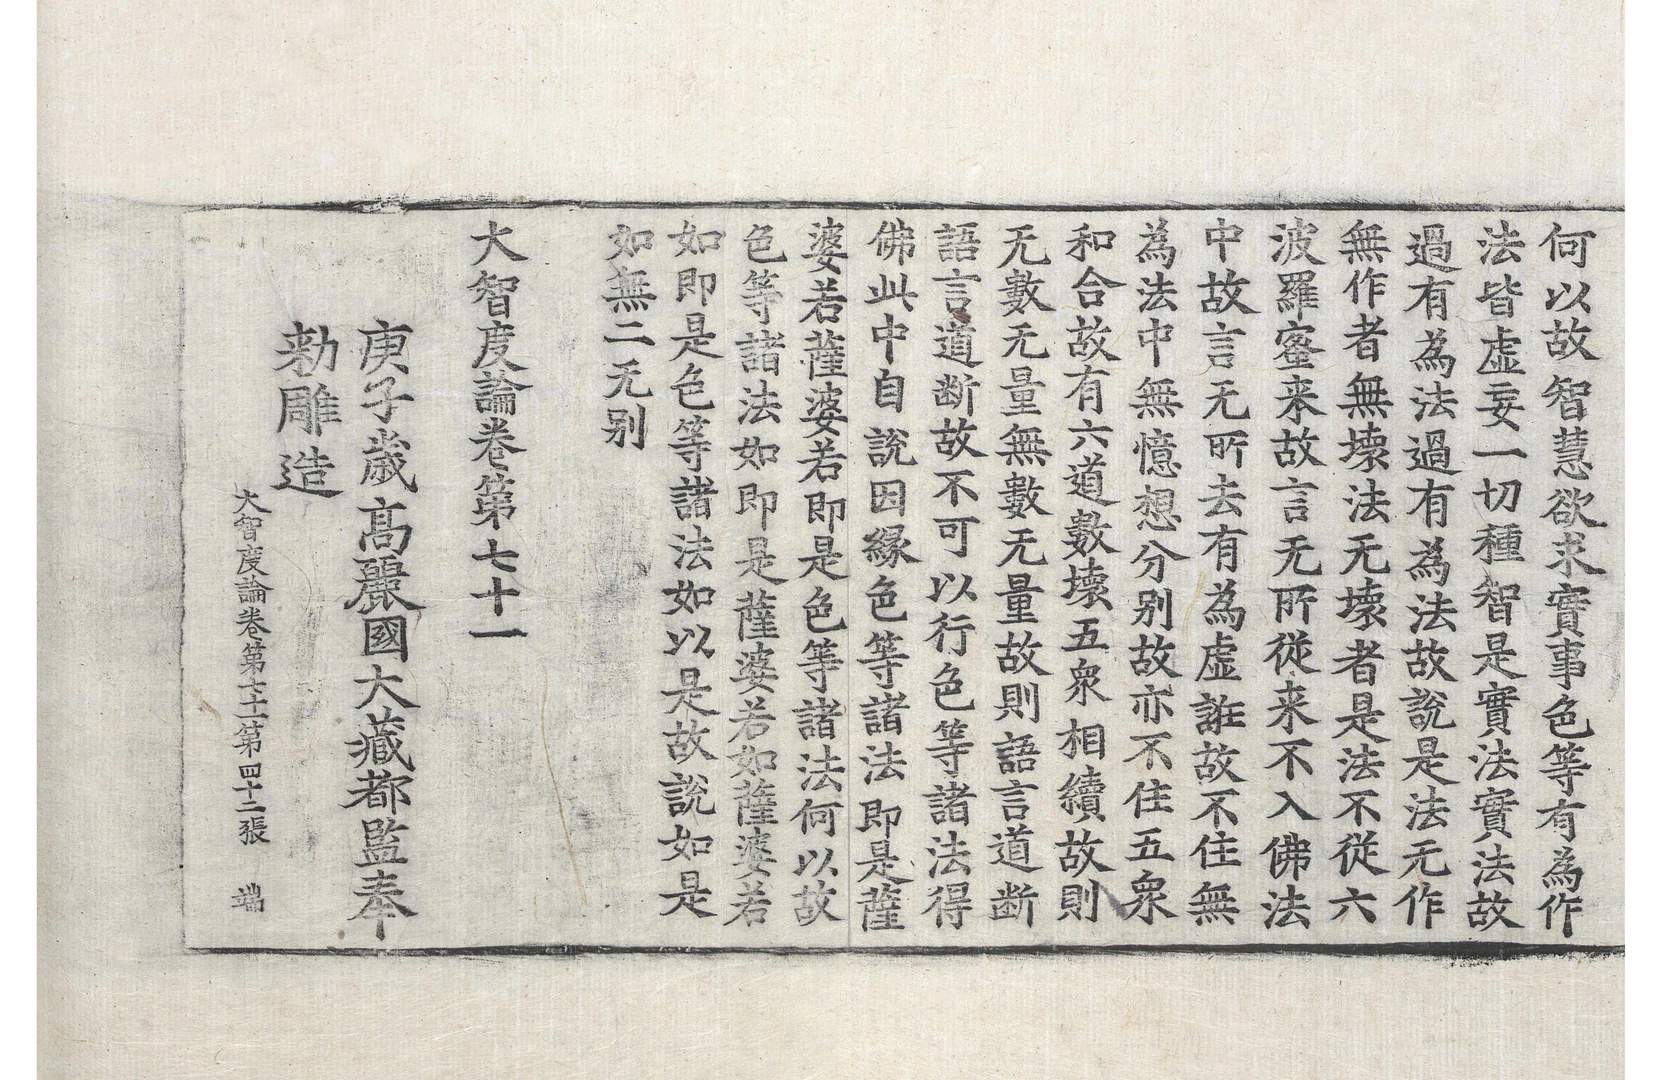 何以故智慧欲求實事色等有為作
法皆虛妄一切種智是實法實法故
過有為法過有為法故說是法无作
無作者無壞法无壞者是法不從六
波羅蜜来故言无所從来不入佛法
中故言无所去有為虛誑故不住無
為法中無憶想分別故亦不住五衆
和合故有六道數壞五衆相續故則
无數无量無數无量故則語言道断
語言道断故不可以行色等諸法得
佛此中自說因緣色等諸法即是薩
婆若薩婆若即是色等諸法何以故
色等諸法如即是薩婆若如薩婆若
如即是色等諸法如以是故說如是
如無二无別
大智度論卷第七十一
庚子歲高麗國大藏都監奉
勑雕造
大智度論卷第七十一第四十二張 端